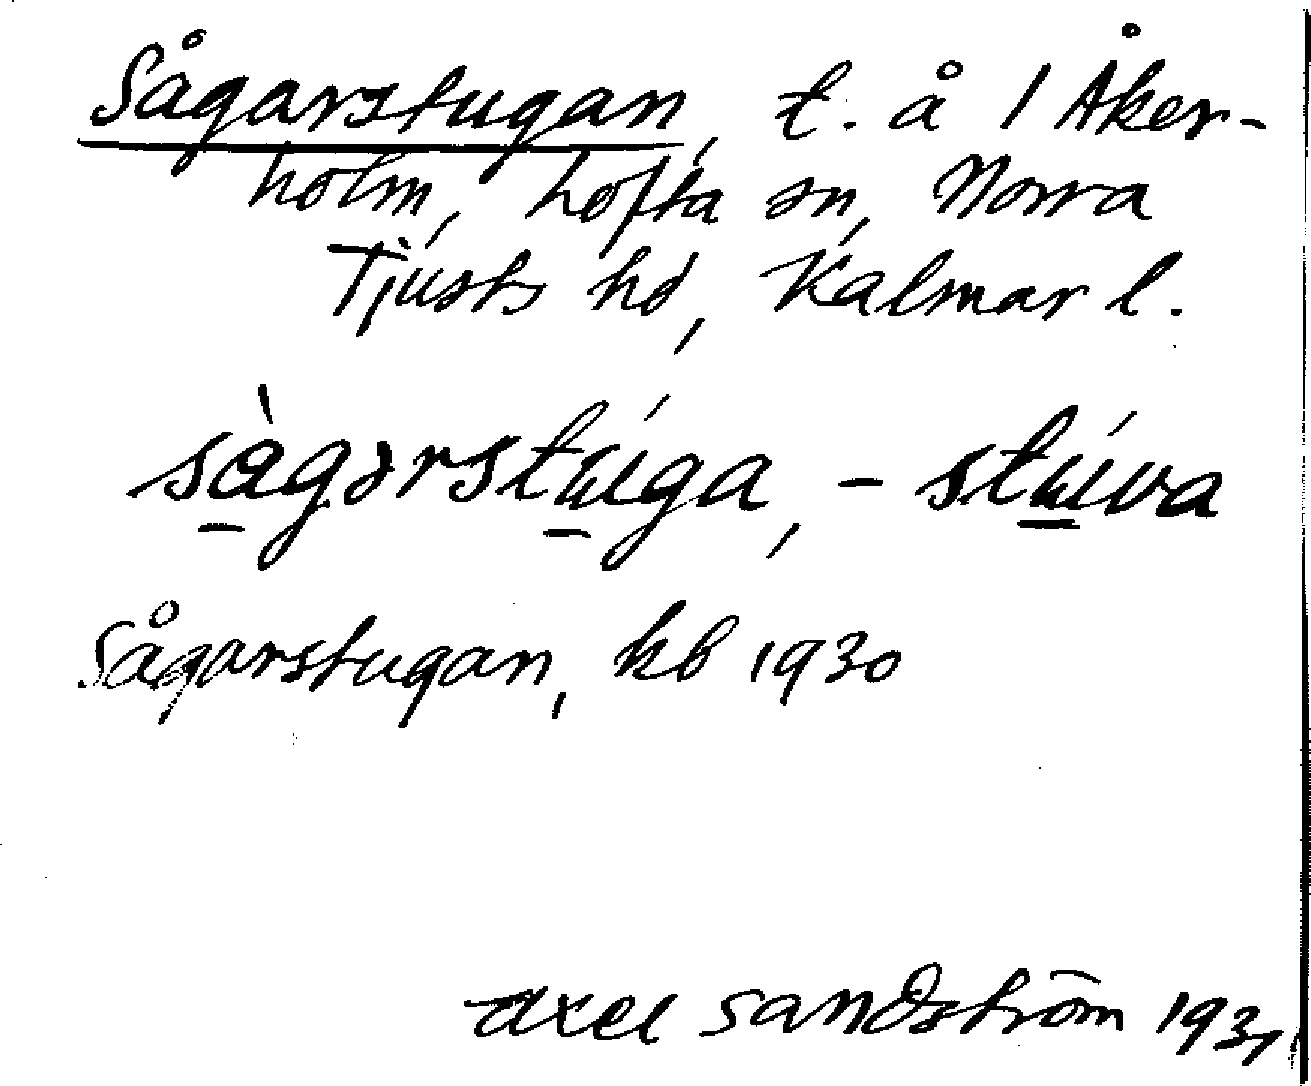 Sågarstugan, t. å 1 Åker-
holm, Lofta sn, Norra
Tjusts hd, Kalmar l.
sàgərstúga, -stúva
Sågarstugan, kb 1930
Axel Sandström 1931